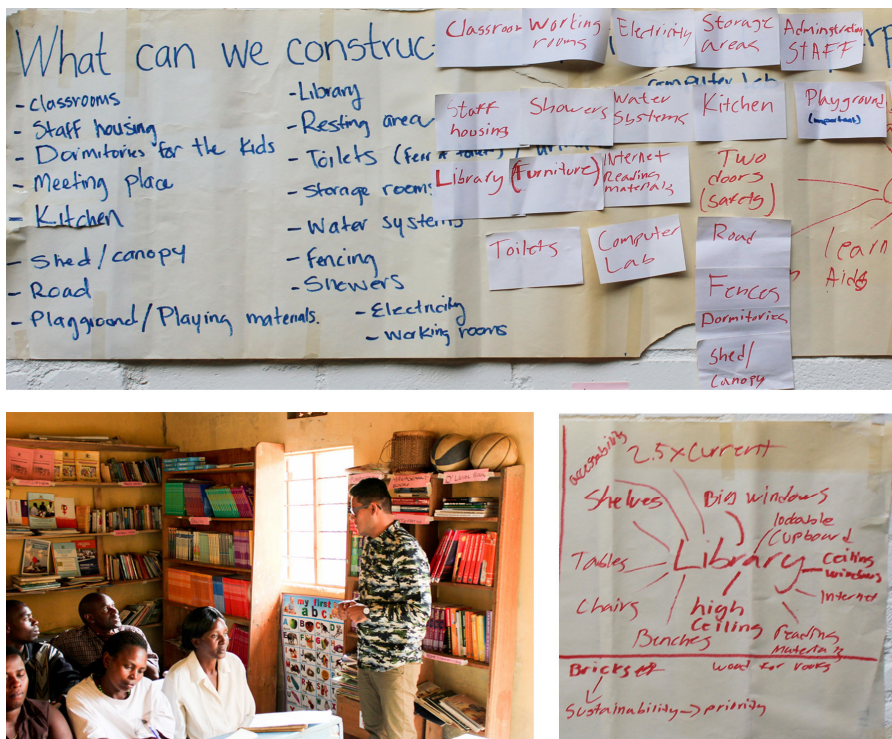 What can we construc
- Classrooms
- Staff housing
- Dormitories for the kids
- Meeting place
- Kitchen
- Shed/canopy
- Road
- Playground/Playing materials.
- Library
- Resting area
- Toilets
- Storage rooms
- Water systems
- Fencing
- Showers
- Electricity
- Working rooms
Computer Lab
Classroom
Working
rooms
Electricity
Storage
areas
Administration
STAFF
Staff
housing
Showers
Water
Systems
Kitchen
Playground
(important)
Library
(Furniture)
Internet
Reading
materials
Two
doors
(safety)
Toilets
Computer
Lab
Road
Fences
Dormitories
Shed/
Canopy
learn
Aids
my first
a b c
accessability
2.5x Current
Shelves
Big windows
lockable
Cupboard
Tables
Library
Ceiling
windows
Internet
Chairs
high
Ceiling
Benches
reading
materials
Bricks
wood for roofs
Sustainability → priority